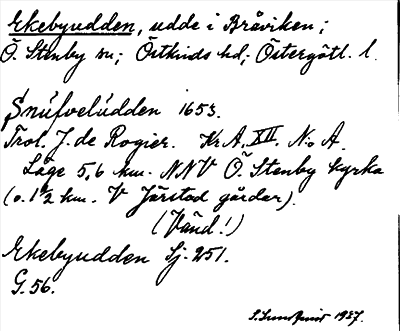 Ekebyudden, udde i Bråviken;
Ö. Stenby sn; Östkinds hd; Östergötl. l.
Snúfvelúdden 1653.
Trol. J. de Rogier. Kr.A. XII. No A.
Läge 5,6 km. NNV Ö. Stenby kyrka
(o. 1 1/2 km. V Järstad gårdar).
(Vänd!)
Ekebyudden Sj. 251.
G. 56.
S. Sundquist 1937.